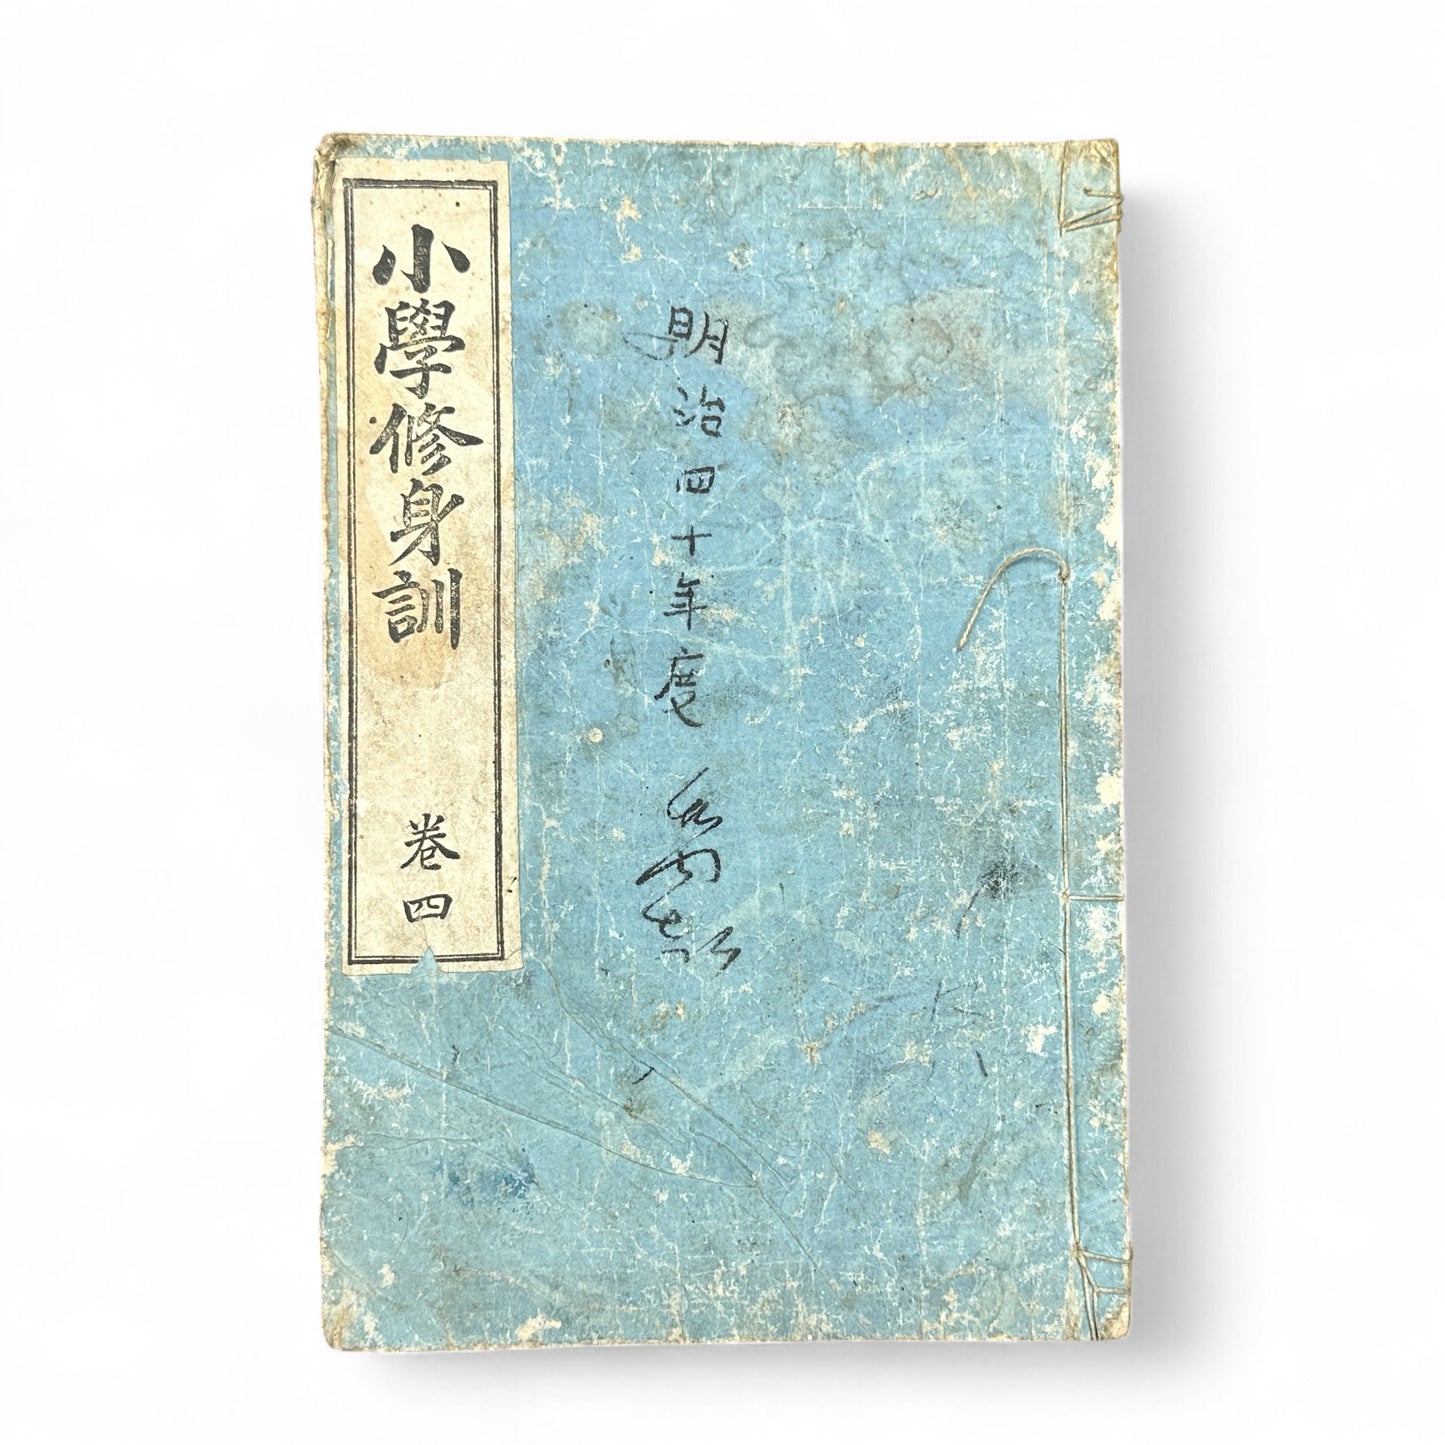 明治四十年度
小學修身訓
卷四